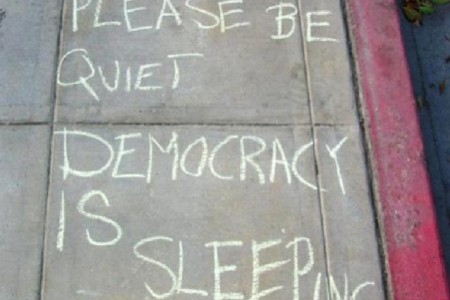 PLEASE BE
QUIET
DEMOCRACY
IS
SLEEPING